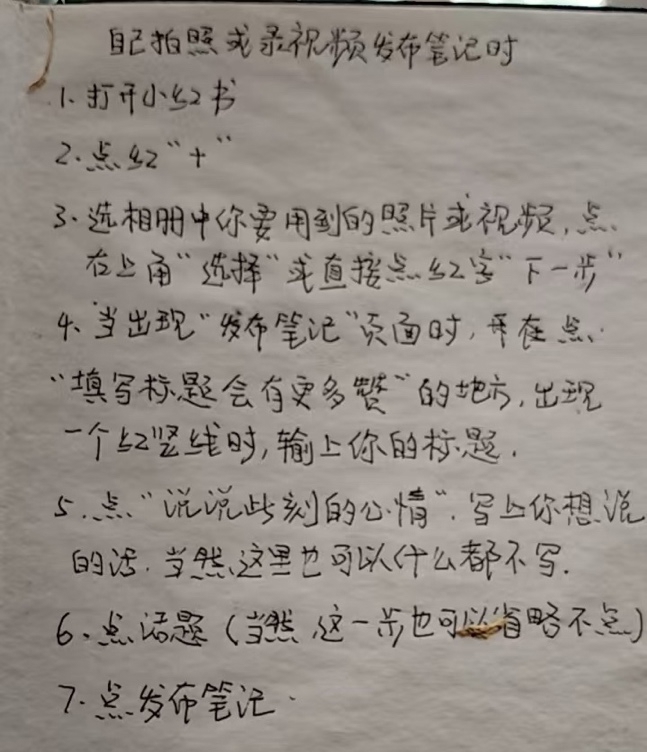 自己拍照或录视频发布笔记时
1.打开小红书
2.点红“+”
3.选相册中你要用到的照片或视频,点
右上角“选择”或直接点红字“下一步”
4.当出现“发布笔记”页面时,再在点
“填写标题会有更多赞”的地方,出现
一个红竖线时,输上你的标题.
5.点“说说此刻的心情”.写上你想说
的话.当然这里也可以什么都不写.
6.点话题(当然这一步也可以省略不点)
7.点发布笔记.